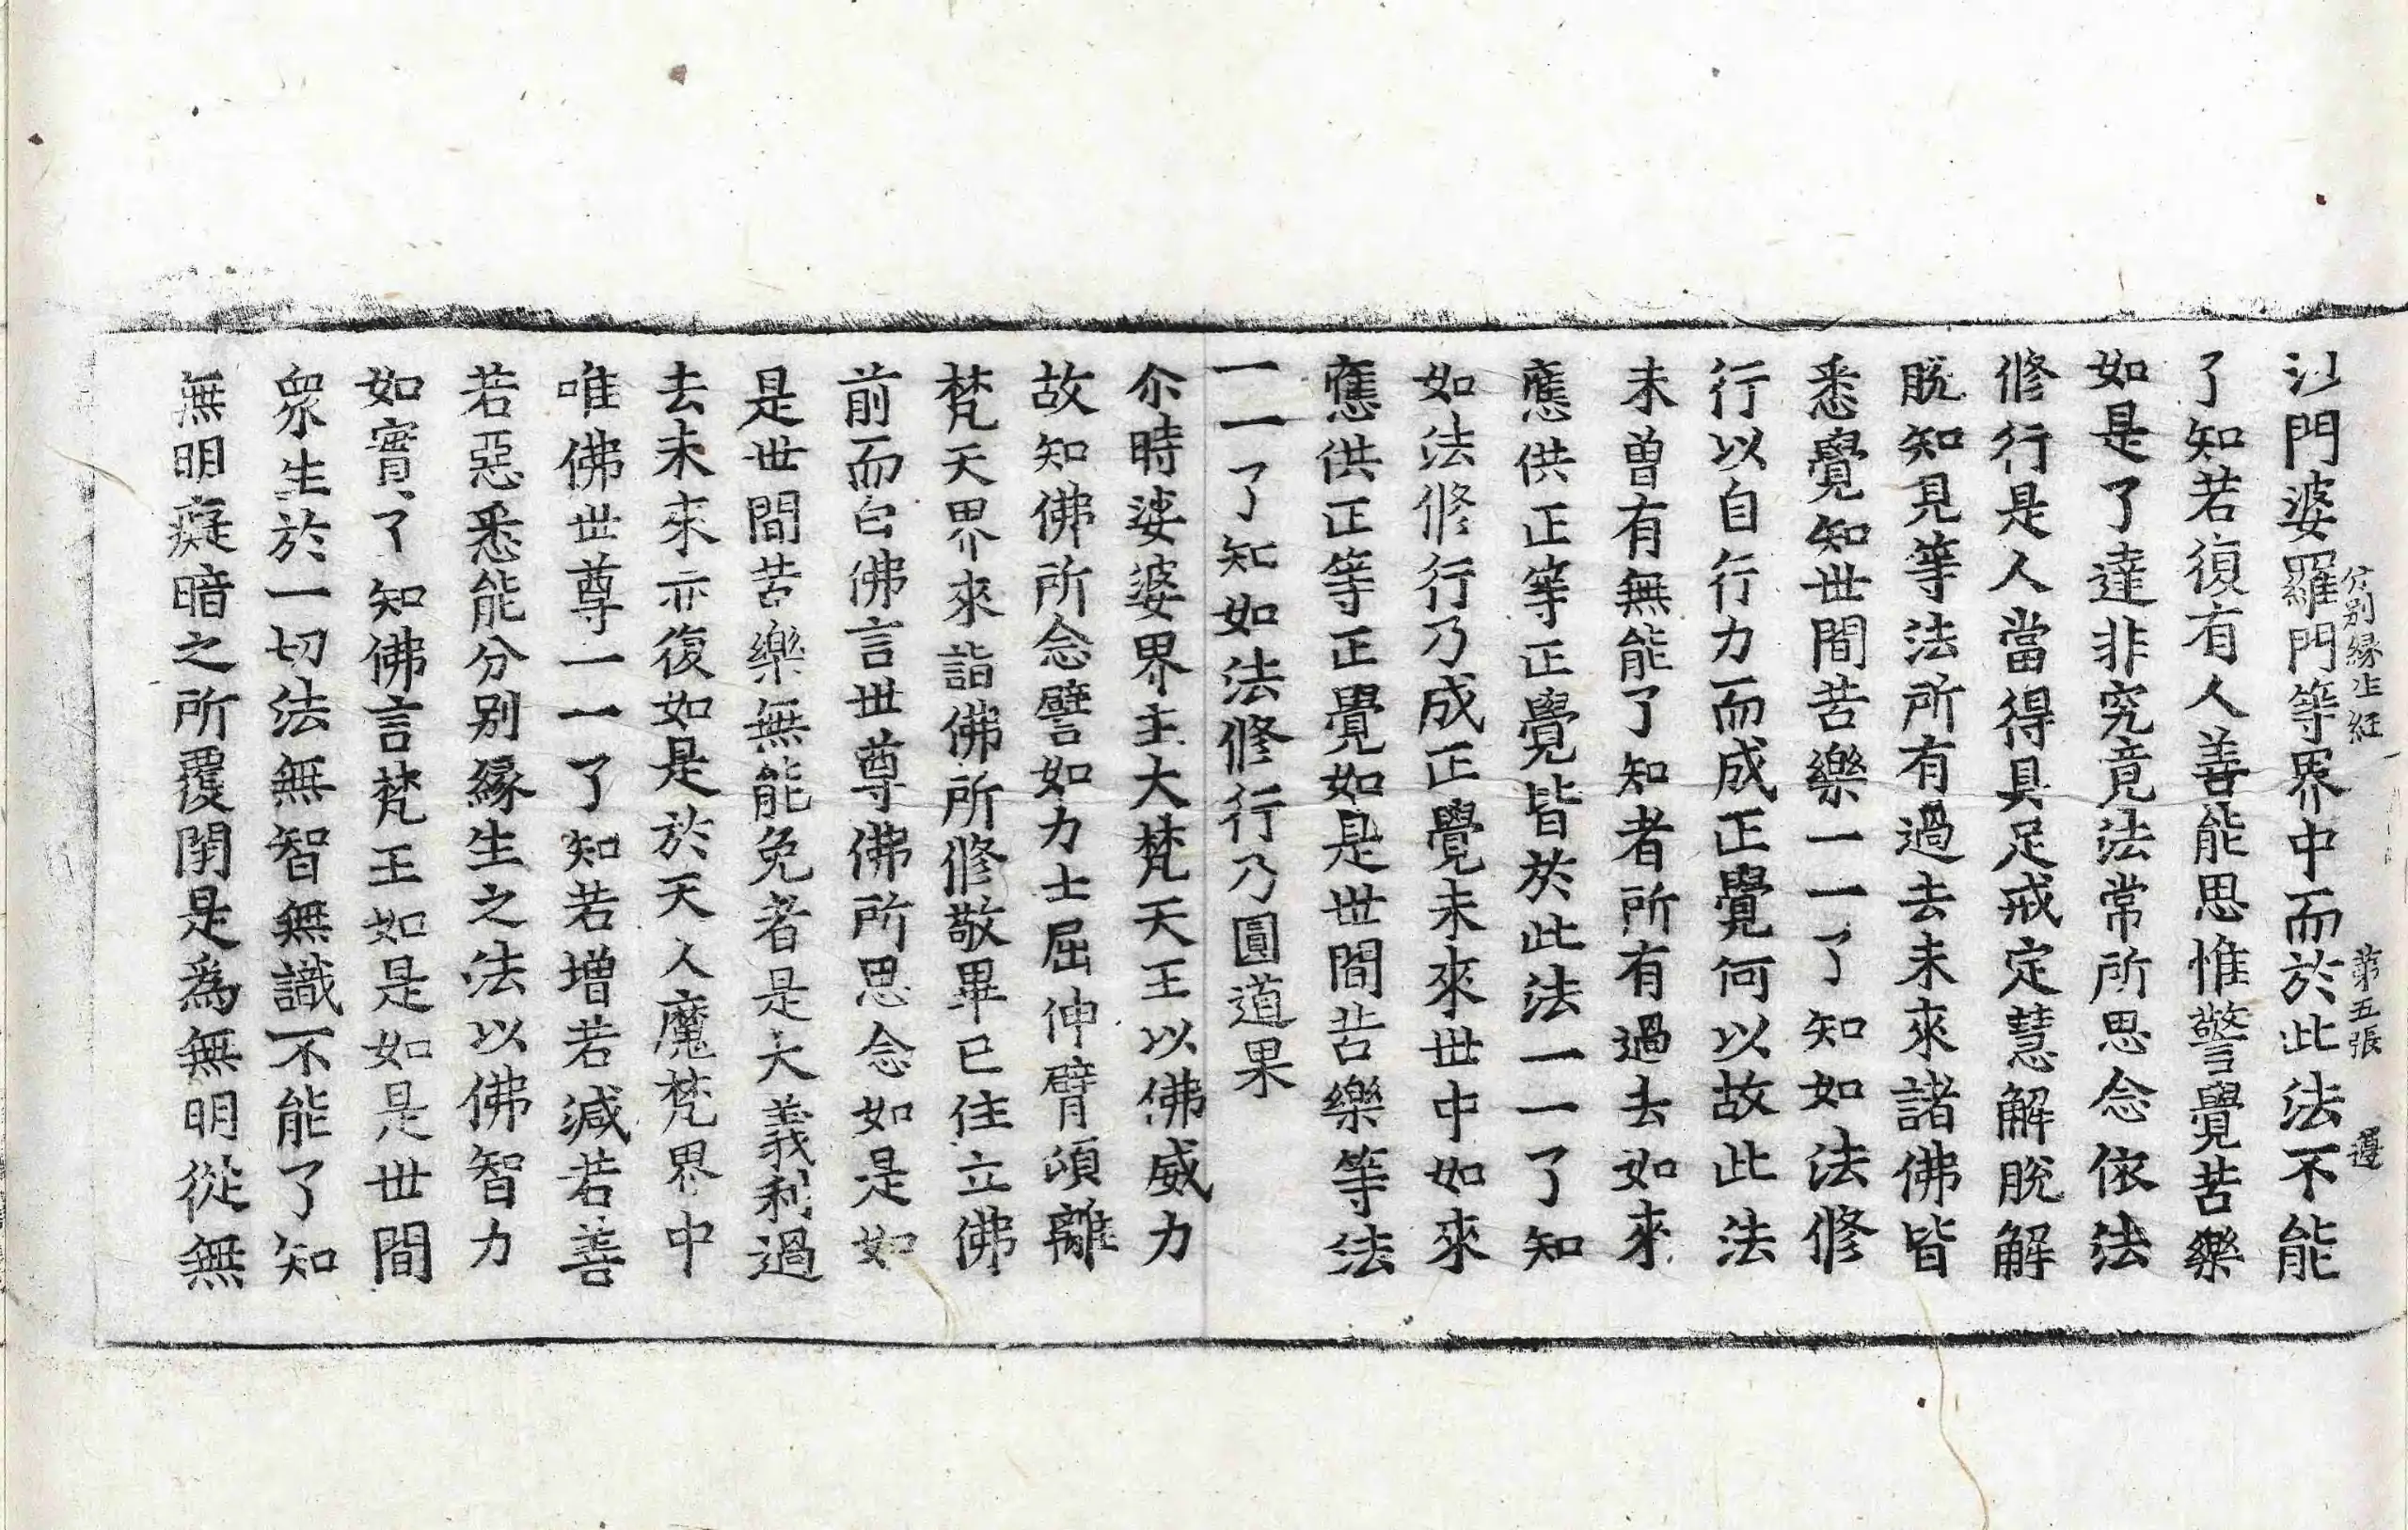 分别緣生經 第五張 遵
沙門婆羅門等界中而於此法不能
了知若復有人善能思惟警覺苦樂
如是了達非究竟法常所思念依法
修行是人當得具足戒定慧解脫解
脫知見等法所有過去未來諸佛皆
悉覺知世間苦樂一一了知如法修
行以自行力而成正覺何以故此法
未曾有無能了知者所有過去如來
應供正等正覺皆於此法一一了知
如法修行乃成正覺未來世中如來
應供正等正覺如是世間苦樂等法
一一了知如法修行乃圓道果
尒時娑婆界主大梵天王以佛威力
故知佛所念譬如力士屈伸臂頃離
梵天界來詣佛所修敬畢已住立佛
前而白佛言世尊佛所思念如是如
是世間苦樂無能免者是大義利過
去未來亦復如是於天人魔梵界中
唯佛世尊一一了知若增若減若善
若惡悉能分别緣生之法以佛智力
如實了知佛言梵王如是如是世間
衆生於一切法無智無識不能了知
無明癡暗之所覆閉是為無明從無